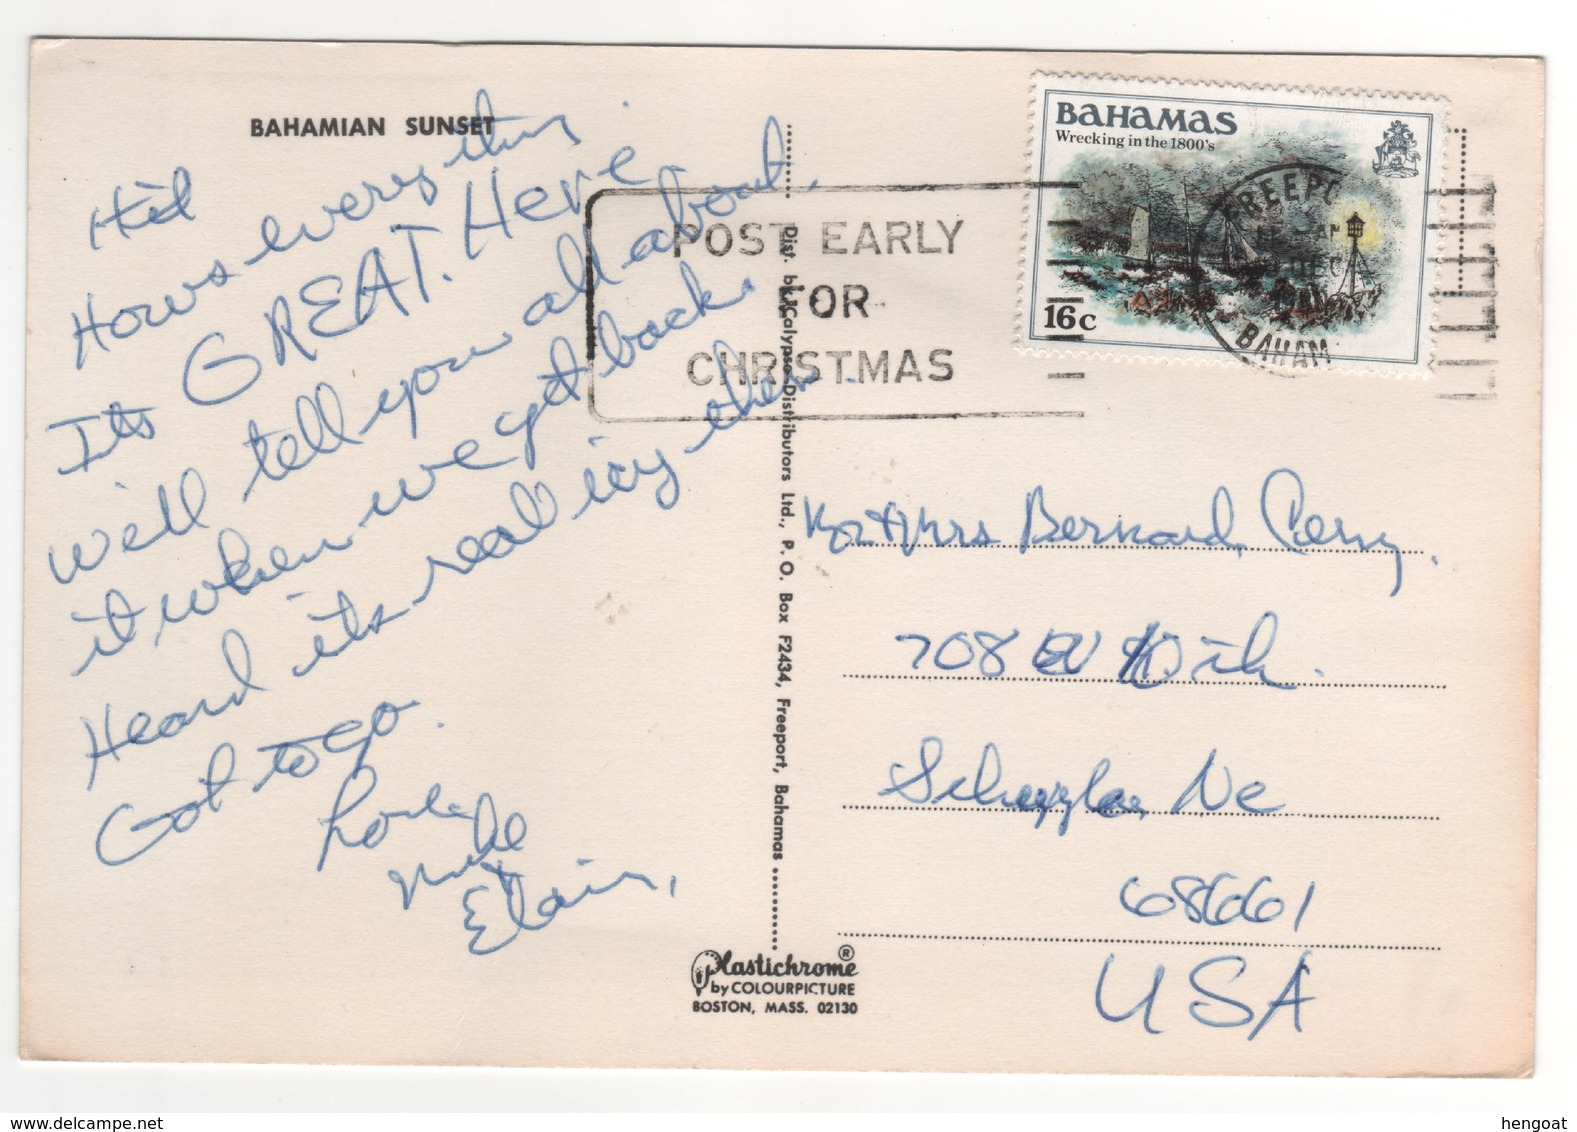 BAHAMIAN SUNSET
Hi!
Hows everything
Its GREAT. Here
We'll tell you all about
it when we get back.
Heard its real icy there.
Got to go.
Love,
Mike
Elain,
Dist. by Calypso Distributors Ltd., P. O. Box F2434, Freeport, Bahamas
Plastichrome ®
by COLOURPICTURE
BOSTON, MASS. 02130
POST EARLY
FOR
CHRISTMAS
BAHAMAS
Wrecking in the 1800's
16c
FREEPO
DEC
BAHAM
Mr & Mrs Bernard Cerny.
708 W 10th.
Schuyler Ne
68661
USA
www.delcampe.net
hengoat